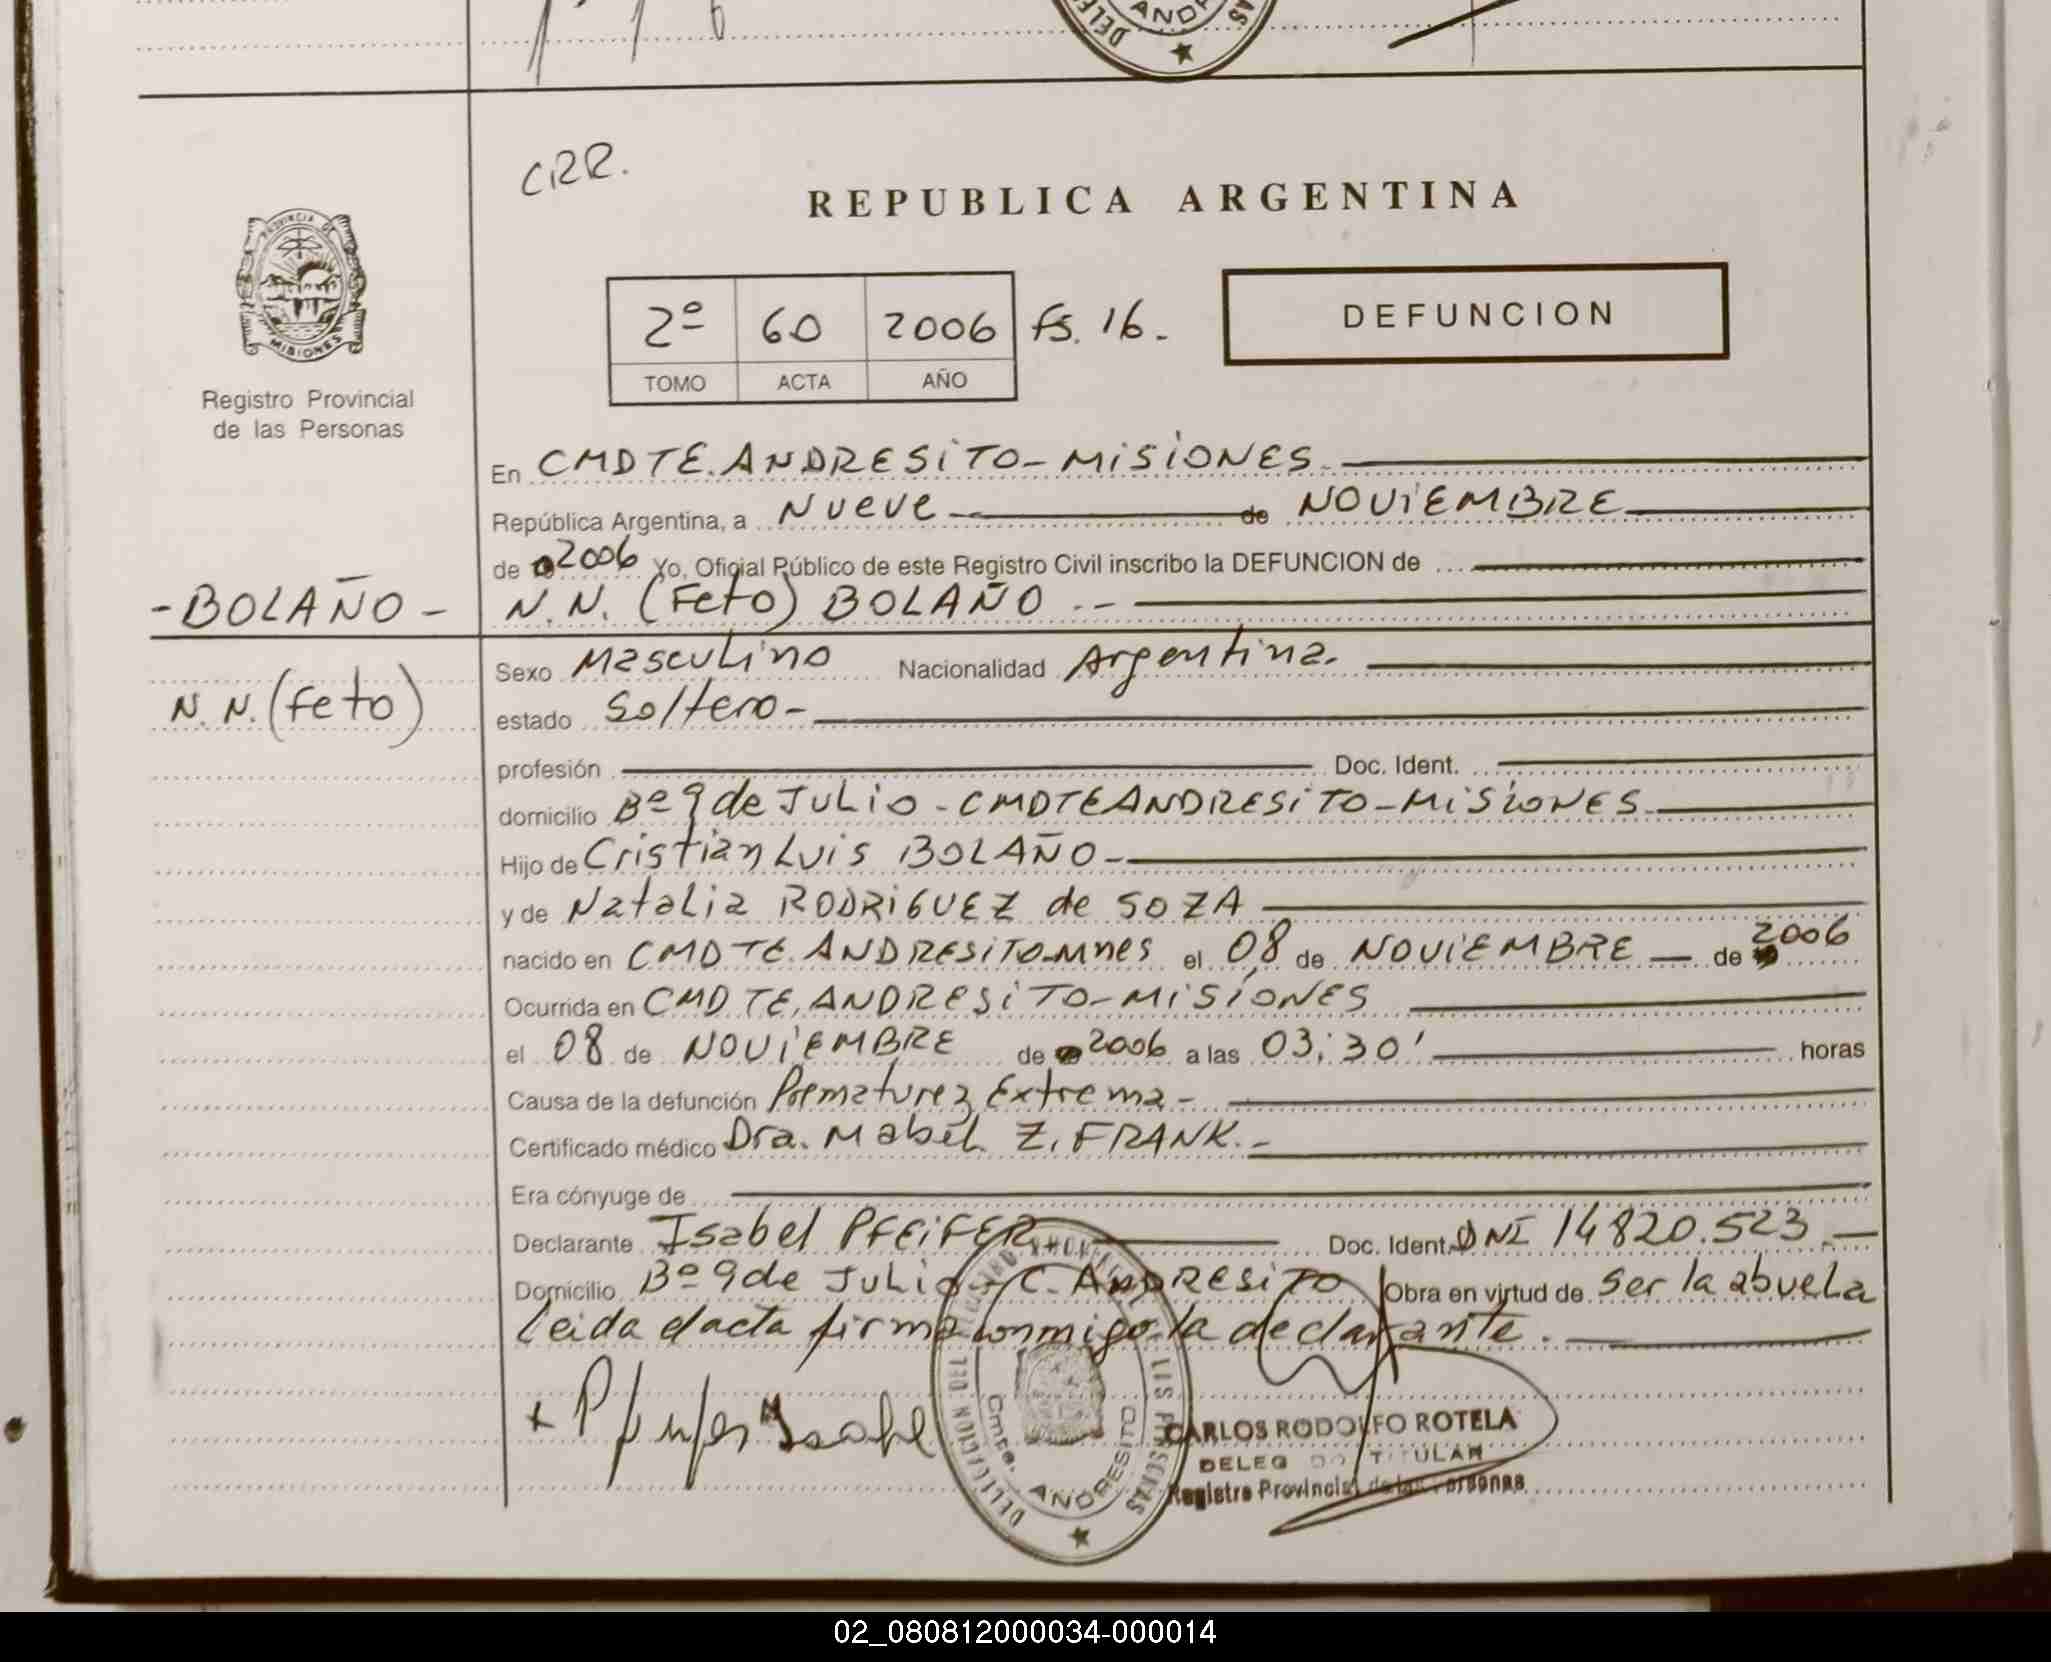 DELE ANDR AS
CRR.
REPUBLICA ARGENTINA
PROVINCIA DE
MISIONES
2º 60 2006 fs. 16.-
TOMO ACTA AÑO
DEFUNCION
Registro Provincial
de las Personas
En CMDTE. ANDRESITO - MISIONES.
República Argentina, a Nueve - de NOVIEMBRE
de 2006 Yo, Oficial Público de este Registro Civil inscribo la DEFUNCION de ...
- BOLAÑO - N.N. (Feto) BOLAÑO .--
Sexo Masculino Nacionalidad Argentina.
N.N. (feto)
estado Soltero -
profesión Doc. Ident.
domicilio Bº 9 de JULIO - CMDTE ANDRESITO - MISIONES
Hijo de Cristian Luis BOLAÑO -
y de Natalia RODRIGUEZ de SOZA
nacido en CMDTE. ANDRESITO - Mnes el 08 de NOVIEMBRE - de 2006
Ocurrida en CMDTE, ANDRESITO - MISIONES
el 08 de NOVIEMBRE de 2006 a las 03:30' horas
Causa de la defunción Prematurez Extrema -
Certificado médico Dra. Mabel Z. FRANK. -
Era cónyuge de
Declarante Isabel PFEIFER Doc. Ident. DNI 14820.523.-
Domicilio Bº 9 de JULIO - C. ANDRESITO Obra en virtud de ser la abuela
Leida el acta firma conmigo la declarante.
+ Pfeifer Isabel
DELEGACION DEL
Cmte. ANDRESITO
LAS PERSONAS
CARLOS RODOLFO ROTELA
DELEGADO TITULAR
Registro Provincial de las Personas
02_080812000034-000014